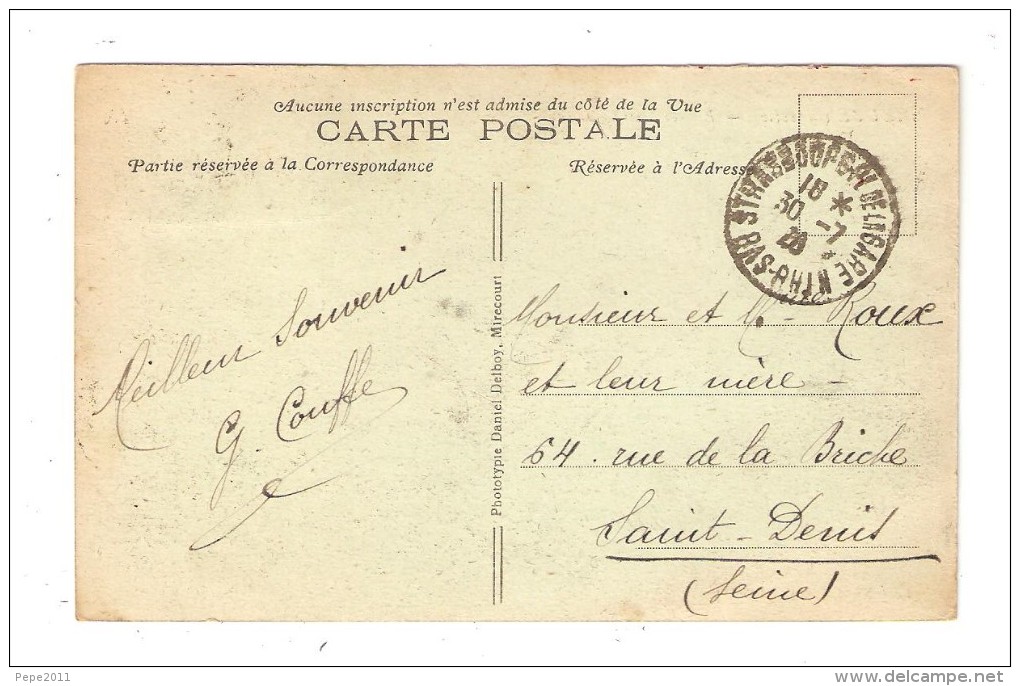 Aucune inscription n'est admise du côté de la Vue
CARTE POSTALE
Partie réservée à la Correspondance
Réservée à l'Adresse
STRASBOURG DE LA GARE
18 *
30 -7
BAS-RHIN
Meilleur Souvenir
G. Couffe
Phototypie Daniel Delboy, Mirecourt
Monsieur et Mme Roux
et leur mère -
64. rue de la Briche
Saint-Denis
(Seine)
Pepe2011
delcampe.net